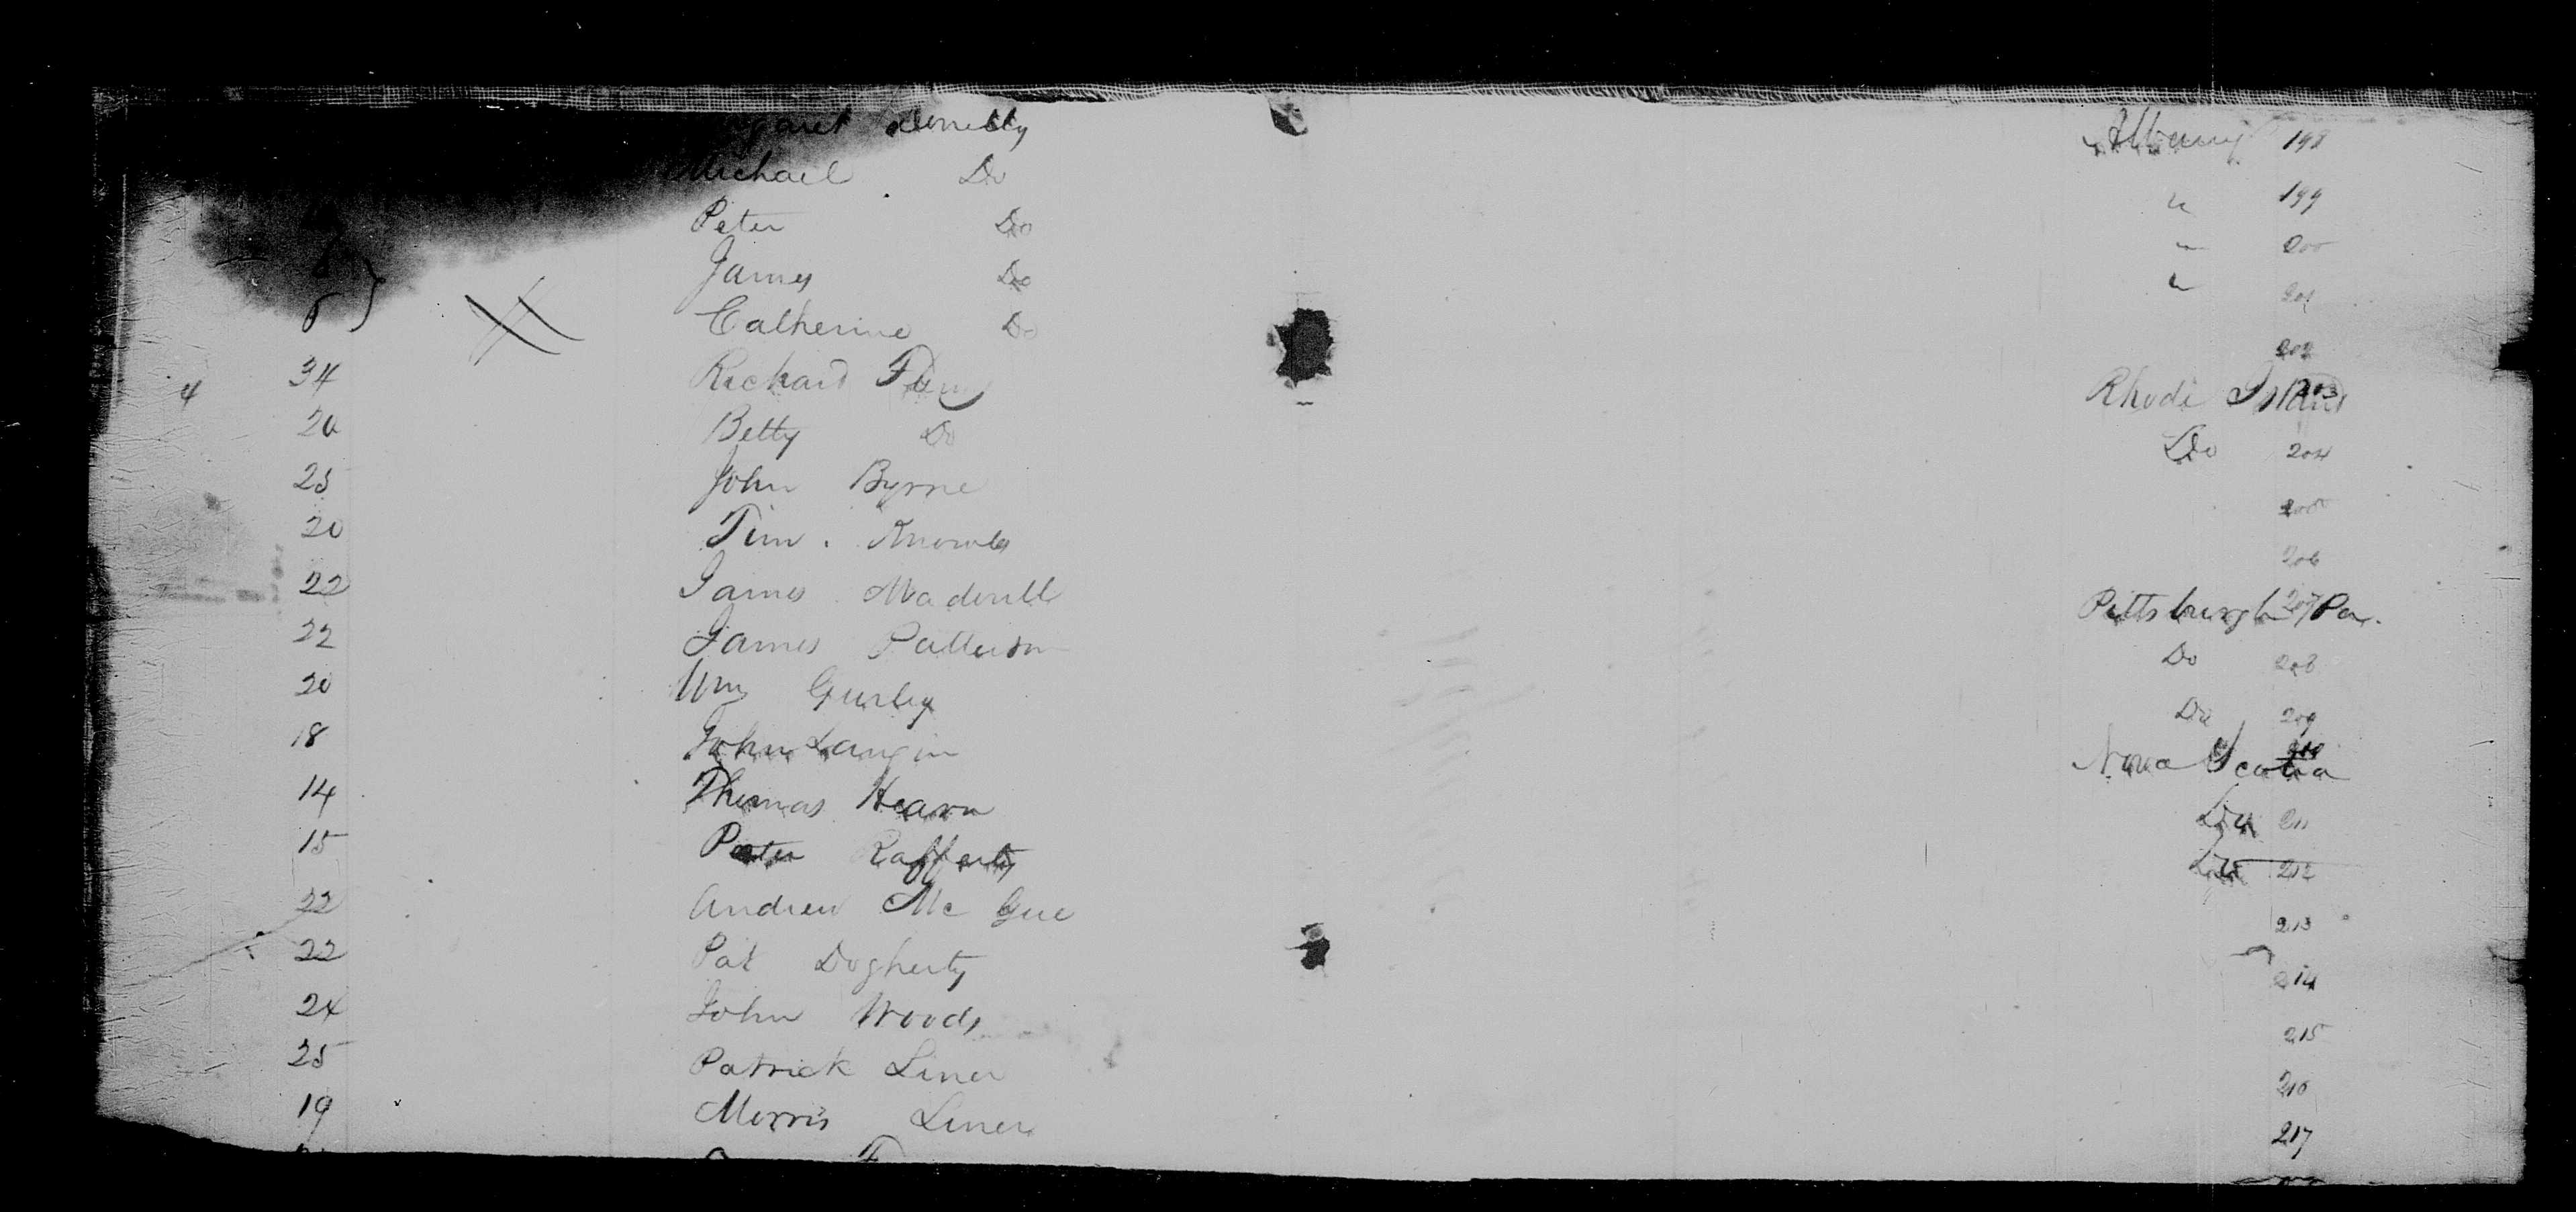 Donnelly Albany 198
Michael Do " 199
Peter Do " 200
6 James Do " 201
Catherine Do 202
4 34 Richard Rhode Island 203
20 Betty Do Do 204
25 John Byrne 205
20 Tim. Knowls 206
22 James Pittsburgh Pa. 207
22 James Patterson Do 208
20 Wm Gurley Do 209
18 John Langin Nova Scotia 210
14 Thomas Hearn Do 211
15 Peter Rafferty Do 212
22 Andrew Mc Gue 213
22 Pat Dogherty 214
24 John Woods 215
25 Patrick Liner 216
19 Morris Liner 217